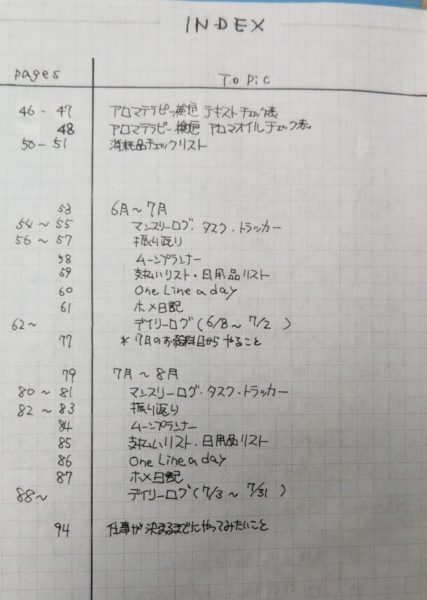 INDEX
pages Topic
46 - 47 アロマテラピー検定 テキストチェック表
48 アロマテラピー検定 アロマオイルチェック表
50 - 51 消耗品チェックリスト
53 6月〜7月
54 〜 55 マンスリーログ・タスク・トラッカー
56 〜 57 振り返り
58 ムーンプランナー
59 支払いリスト・日用品リスト
60 One Line a day
61 ホメ日記
62〜 デイリーログ (6/8 〜 7/2 )
77 * 7月のお給料日からやること
79 7月〜8月
80 〜 81 マンスリーログ・タスク・トラッカー
82 〜 83 振り返り
84 ムーンプランナー
85 支払いリスト・日用品リスト
86 One Line a day
87 ホメ日記
88〜 デイリーログ (7/3 〜 7/31 )
94 仕事が決まるまでにやってみたいこと